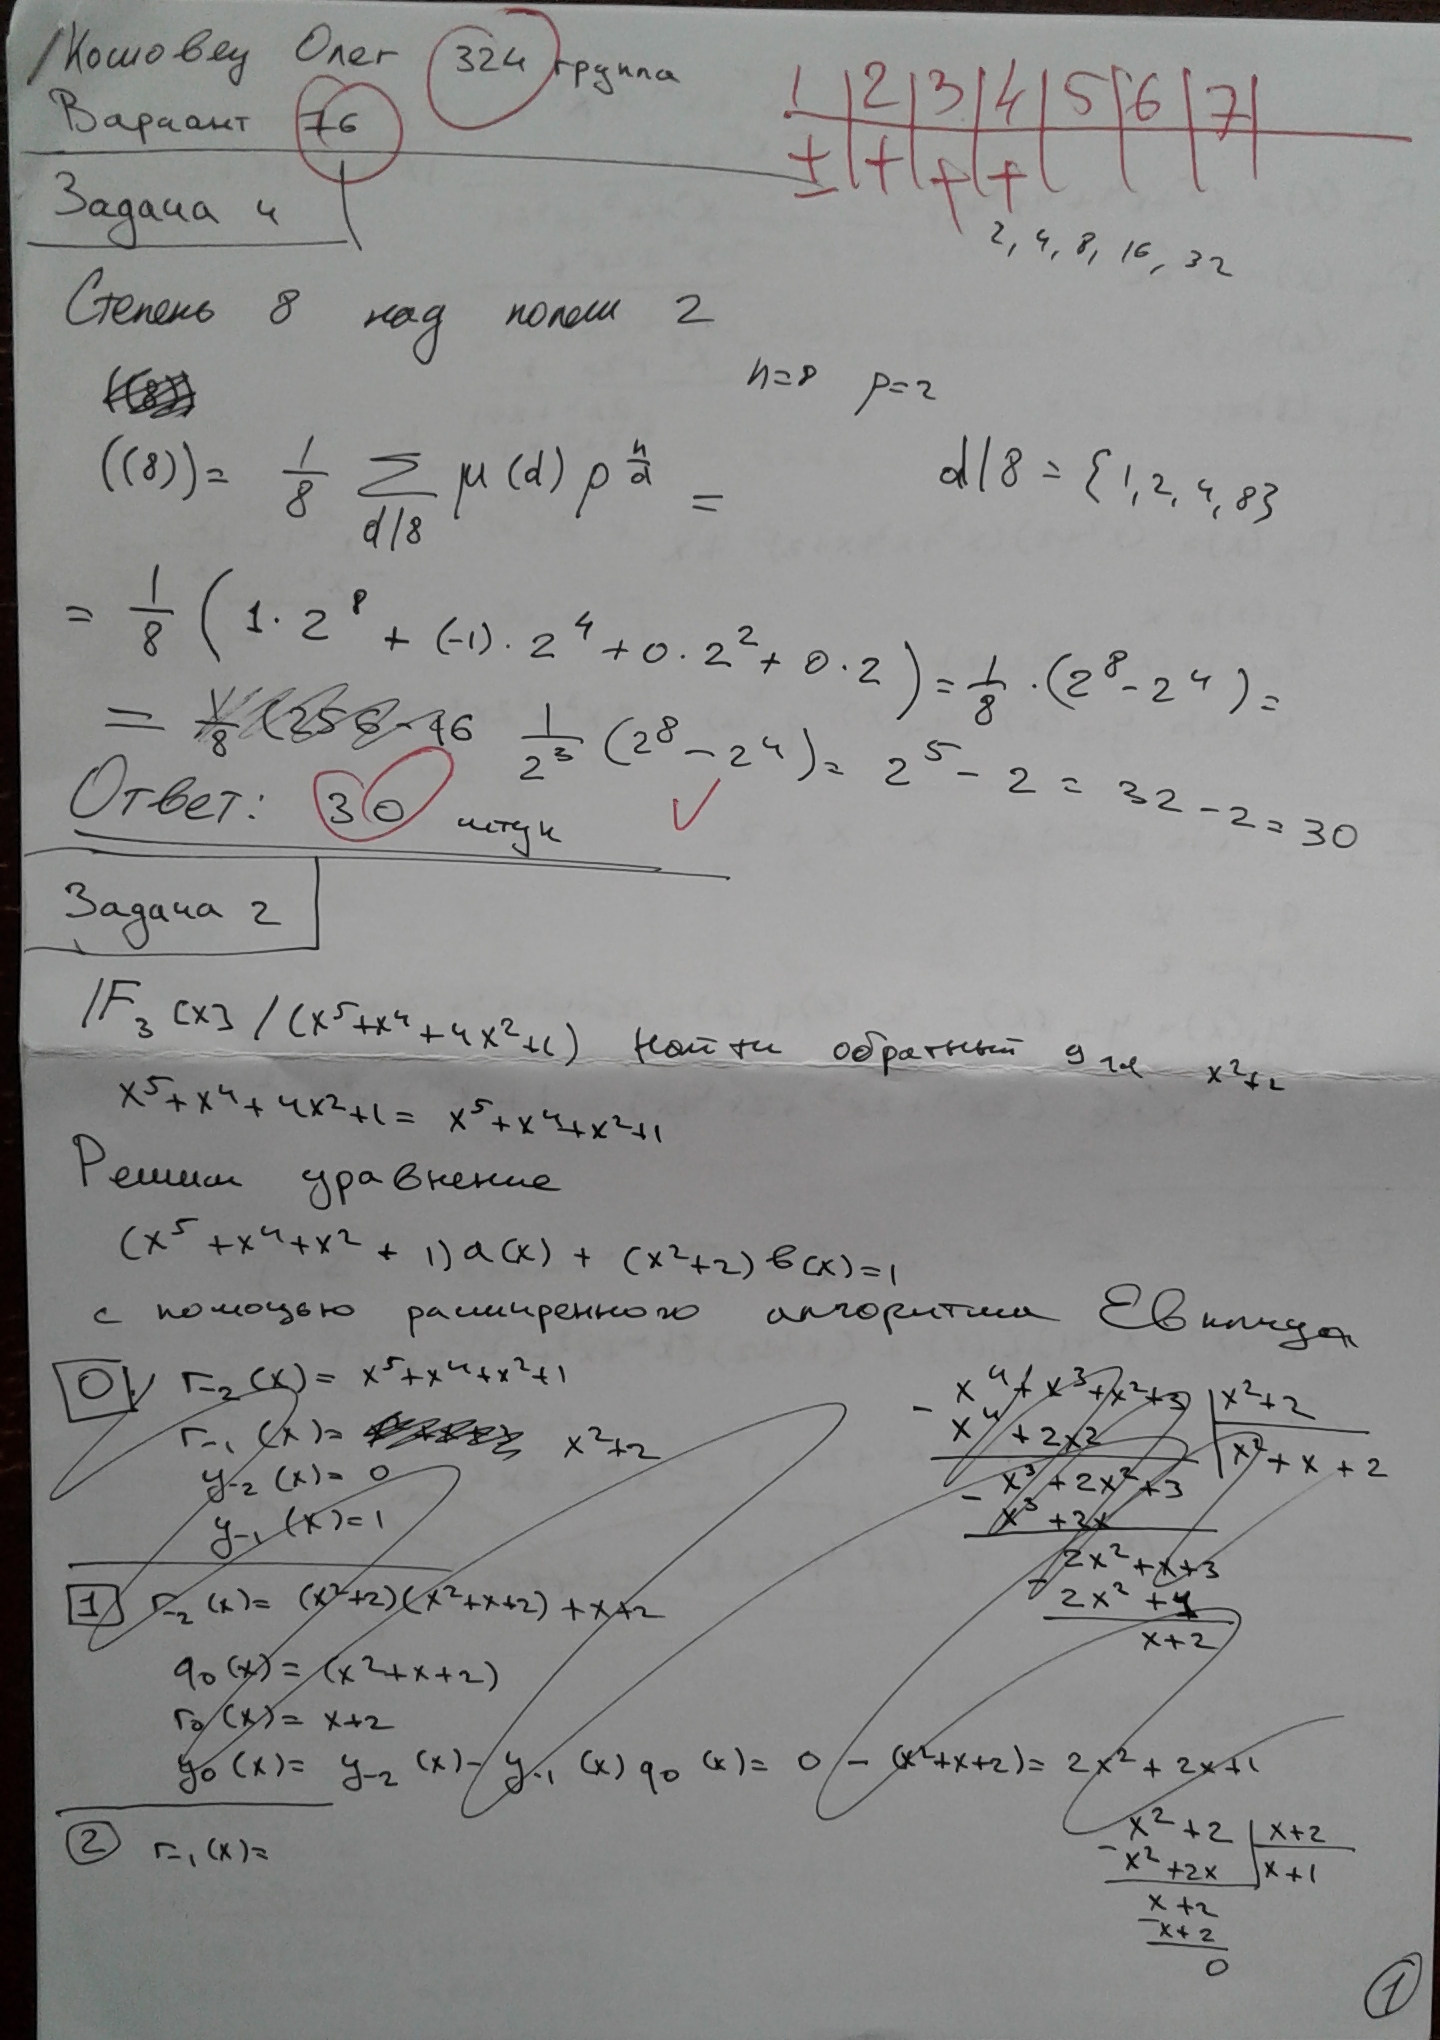 Кошовец Олег 324 группа
Вариант 76
1 | 2 | 3 | 4 | 5 | 6 | 7 |
± | + | + | + |
Задача 4
2, 4, 8, 16, 32
Степень 8 над полем 2
n=8 p=2
((8)) = 1/8 ∑_{d/8} μ(d) p^{n/d} =
d/8 = {1, 2, 4, 8}
= 1/8 (1·2^8 + (-1)·2^4 + 0·2^2 + 0·2) = 1/8 · (2^8 - 2^4) =
= 1/8 (256 - 16 1/2^3 (2^8 - 2^4) = 2^5 - 2 = 32 - 2 = 30
Ответ: 30 штук ✓
Задача 2
F_3[x] / (x^5+x^4+4x^2+1) Найти обратный для x^2+2
x^5+x^4+4x^2+1 = x^5+x^4+x^2+1
Решим уравнение
(x^5+x^4+x^2+1)a(x) + (x^2+2)b(x)=1
с помощью расширенного алгоритма Евклида
0 r_{-2}(x) = x^5+x^4+x^2+1
r_{-1}(x) = x^2+2
y_{-2}(x) = 0
y_{-1}(x) = 1
x^4+x^3+x^2+3 | x^2+2
- x^4+2x^2 | x^2+x+2
x^3+2x^2+3
- x^3+2x
2x^2+x+3
- 2x^2+4
x+2
1 r_{-2}(x) = (x^2+2)(x^2+x+2)+x+2
q_0(x) = (x^2+x+2)
r_0(x) = x+2
y_0(x) = y_{-2}(x) - y_{-1}(x) q_0(x) = 0 - (x^2+x+2) = 2x^2+2x+1
2 r_{-1}(x) =
x^2+2 | x+2
- x^2+2x | x+1
x+2
- x+2
0
1